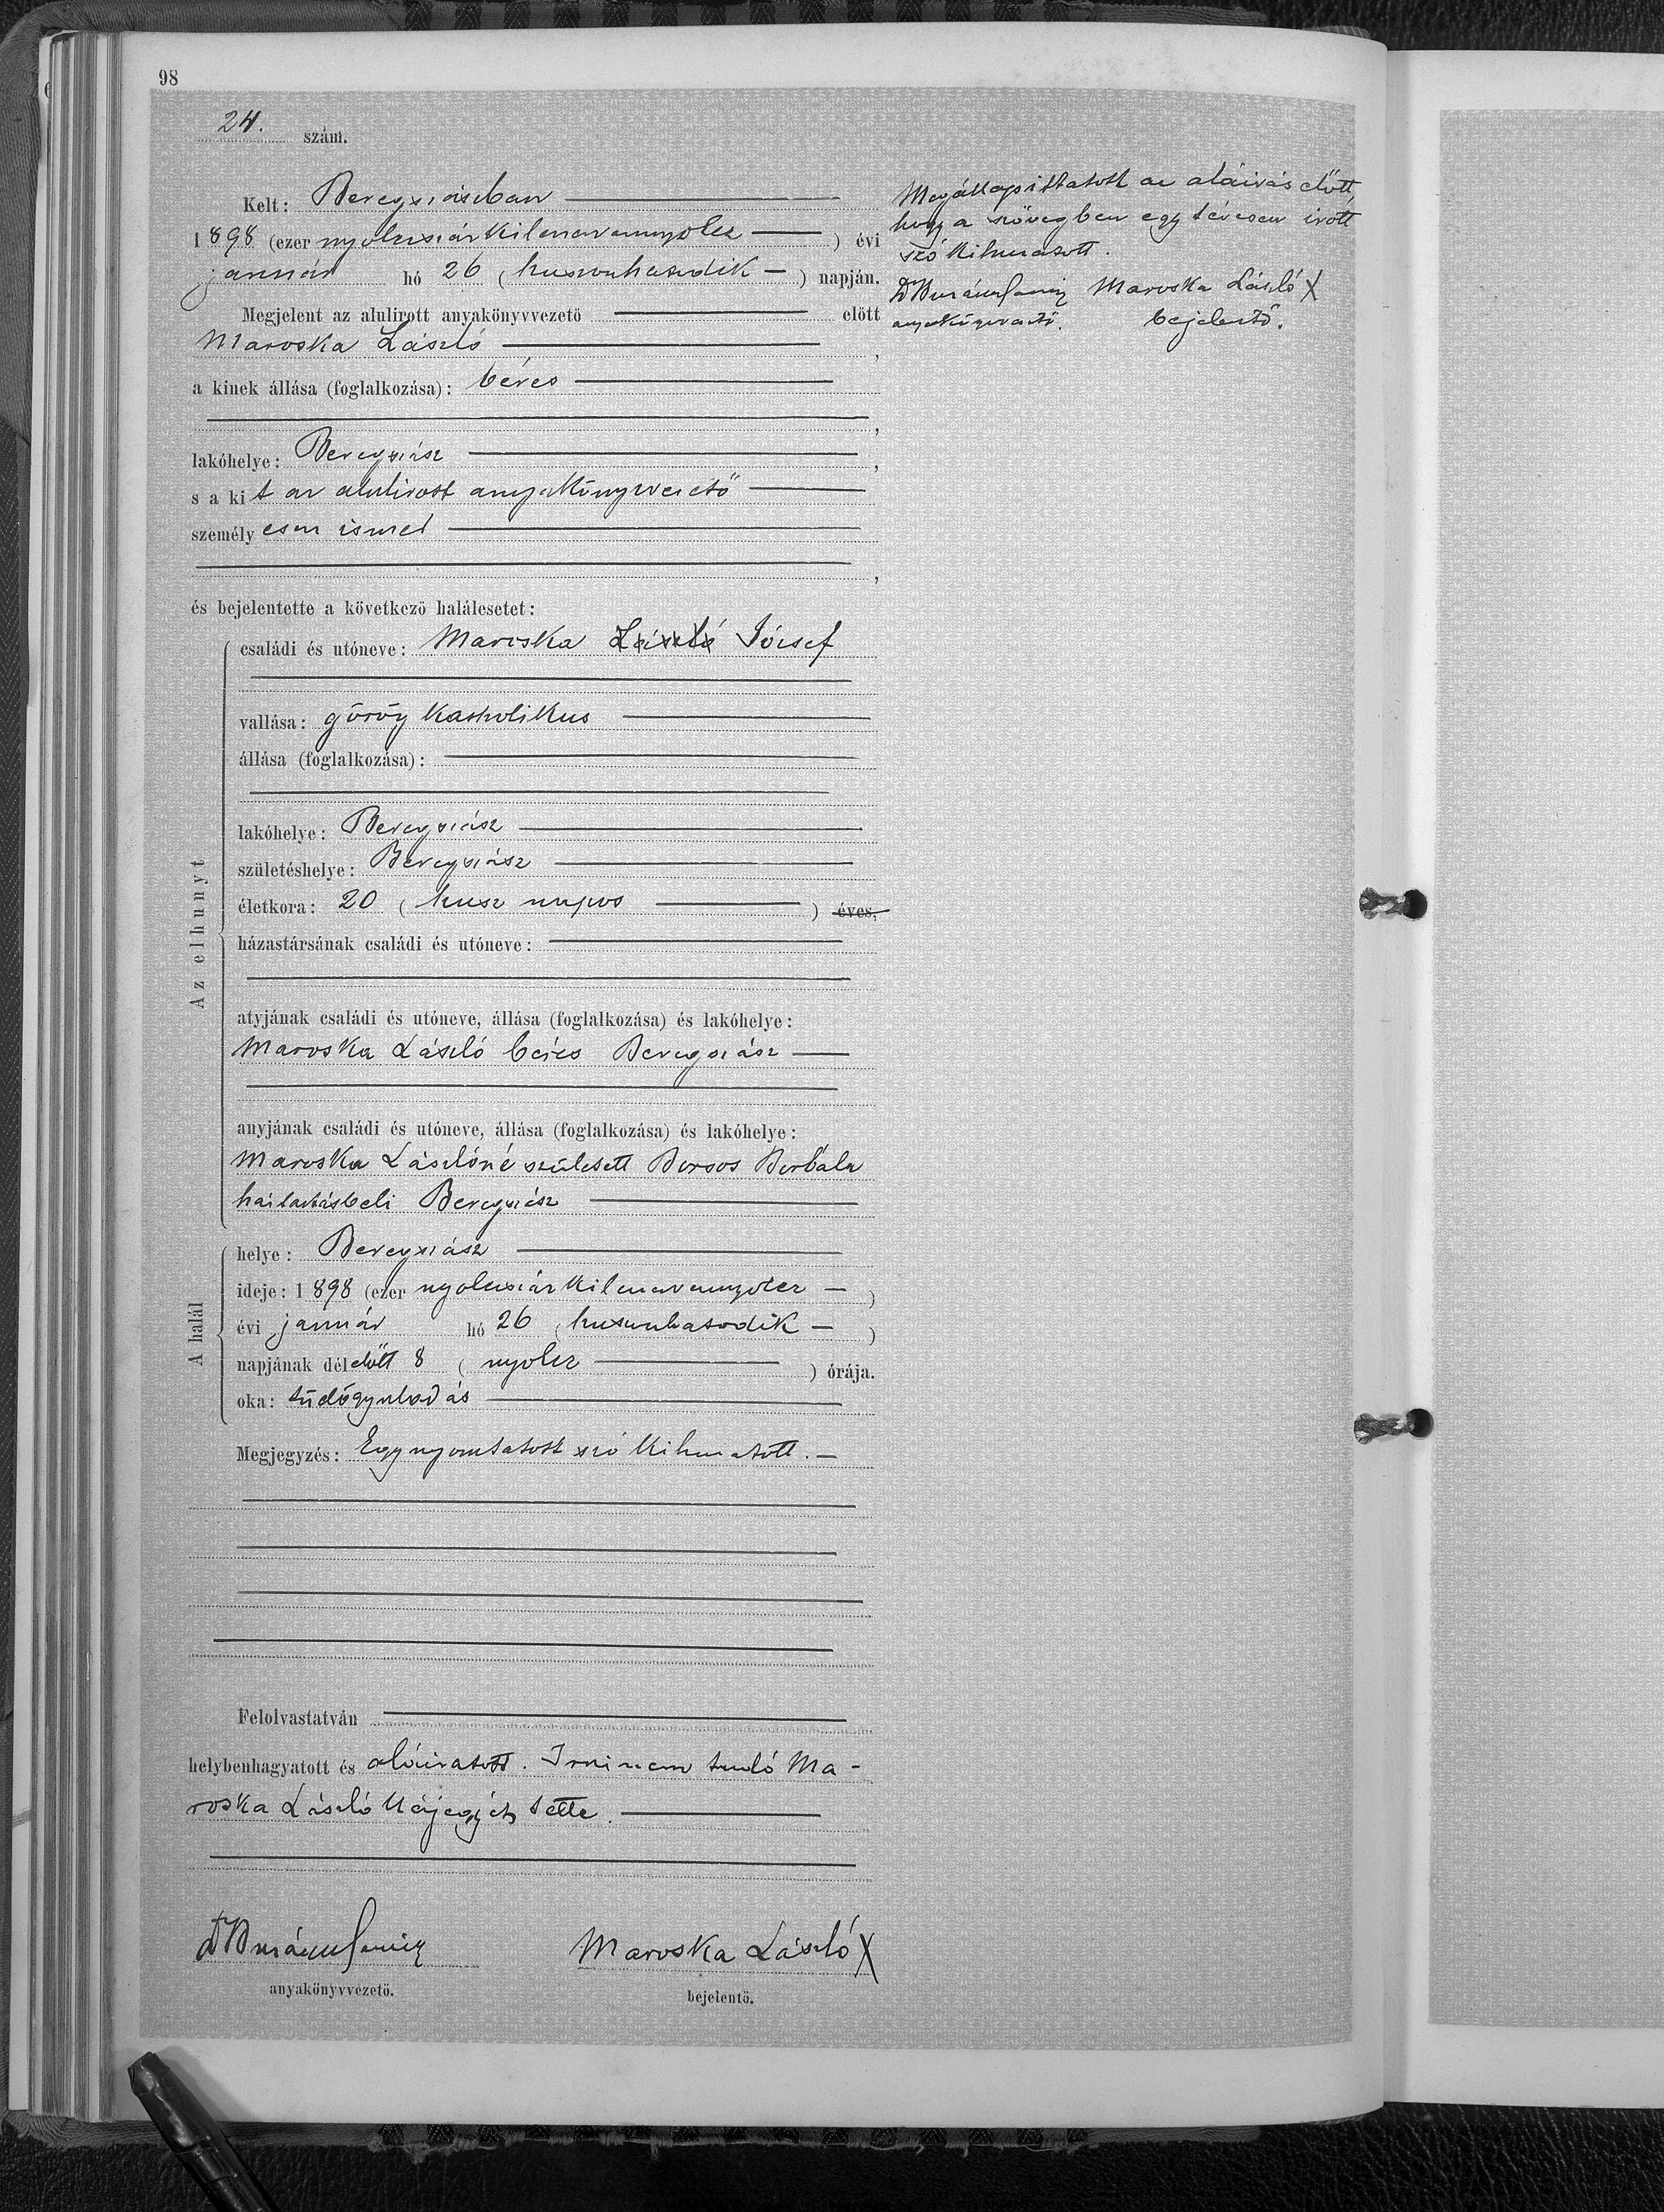 98
24. szám.
Kelt: Beregszászban
1898 (ezer nyolczszázkilenczvennyolcz) évi
január hó 26 (huszonhatodik) napján.
Megjelent az alulirott anyakönyvvezető előtt
Maroska László,
a kinek állása (foglalkozása): béres
,
lakóhelye: Beregszász,
s a kit az alulirott anyakönyvvezető
személyesen ismer
,
és bejelentette a következő halálesetet:
Az elhunyt
családi és utóneve: Maroska László József
vallása: görög katholikus
állása (foglalkozása):
lakóhelye: Beregszász
születéshelye: Beregszász
életkora: 20 (husz napos) éves,
házastársának családi és utóneve:
atyjának családi és utóneve, állása (foglalkozása) és lakóhelye:
Maroska László béres Beregszász
anyjának családi és utóneve, állása (foglalkozása) és lakóhelye:
Maroska Lászlóné született Borsos Borbála
háztartásbeli Beregszász
A halál
helye: Beregszász
ideje: 1898 (ezer nyolczszázkilenczvennyolcz)
évi január hó 26 (huszonhatodik)
napjának délelőtt 8 (nyolcz) órája.
oka: tüdőgyuladás
Megjegyzés: Egy nyomtatott szó kihuzatott.
Felolvastatván
helybenhagyatott és aláiratott. Irni nem tudó Ma-
roska László kézjegyét tette.
Maroska László X
anyakönyvvezető.
bejelentő.
Megállapittatott az aláirás előtt,
hogy a szövegben egy tévesen irott
szó kihuzatott.
Maroska László X
anyakönyvvezető. bejelentő.